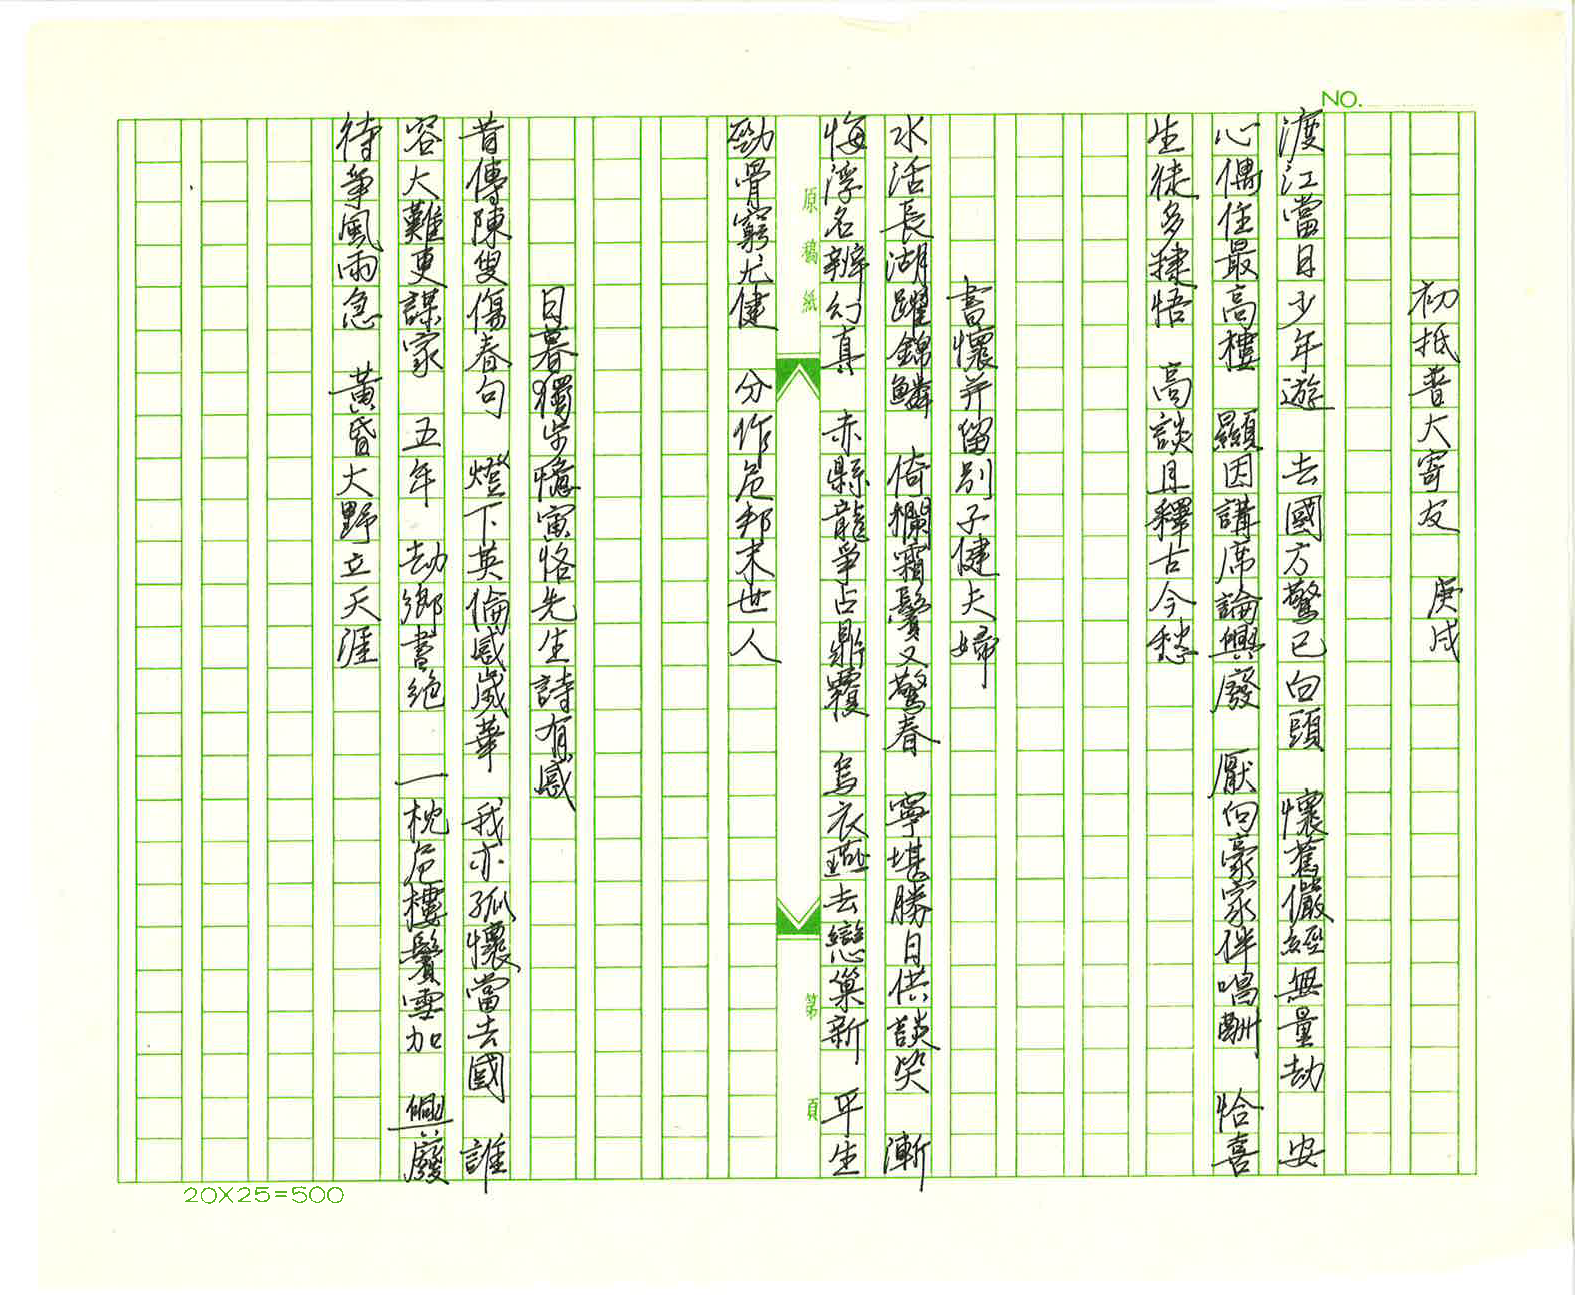 NO.
初抵普大寄友　庚戌
渡江當日少年遊　去國方驚已白頭　懷舊儼經無量劫　安
心偶住最高樓　顯因講席論興廢　厭向豪家伴唱酬　恰喜
生徒多穎悟　高談且釋古今愁
書懷并留別子健夫婦
水活長湖躍錦鱗　倚欄霜鬢又驚春　寧堪勝日供談笑　漸
悔浮名辨幻真　赤縣龍爭占鼎覆　烏衣燕去戀巢新　平生
原稿紙　第　頁
勁骨窮尤健　分作危邦末世人
日暮獨步憶寅恪先生詩有感
昔傳陳叟傷春句　燈下英倫感歲華　我亦孤懷當去國　誰
容大難更謀家　五年　劫鄉書絕　一枕危樓鬢雪加　興廢
待爭風雨急　黃昏大野立天涯
20X25=500